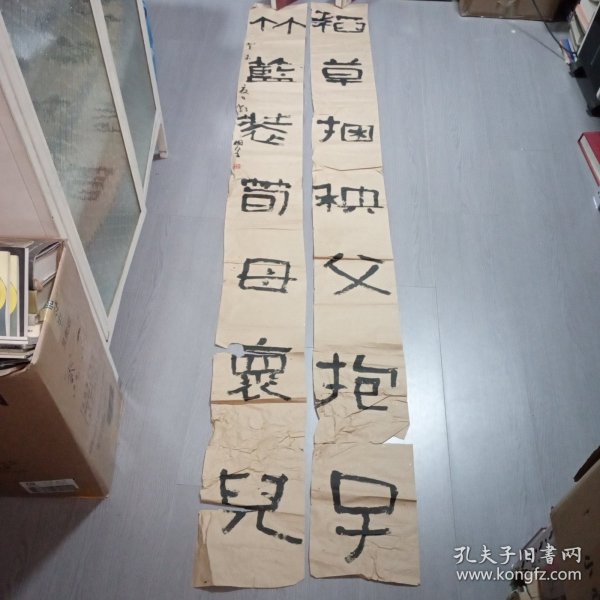 稻草捆秧父抱子
竹藍装筍母裏兒
孔夫子旧書网
www.kongfz.com